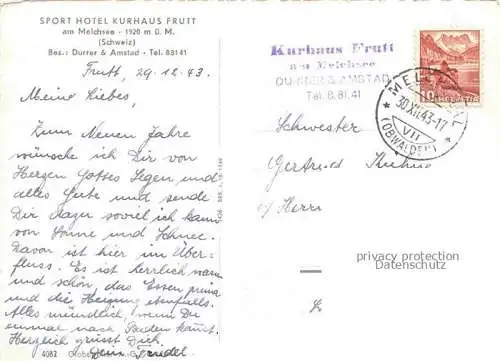 SPORT HOTEL KURHAUS FRUTT
am Melchsee - 1920 m ü. M.
(Schweiz)
Bes.: Durrer & Amstad - Tel. 88141
Frutt, 29.12.43.
Meine Liebes,
Zum Neuen Jahre
wünsche ich Dir von
Herzen Gottes Segen und
alles Gute und sende
Dir dazu soviel ich kann
von Sonne und Schnee.
Davon ist hier im Über-
fluss. Es ist herrlich warm
und schön, das Essen prima
und die Heizung ebenfalls.
Alles mündlich, wenn Du
einmal nach kommst.
Herzlich grüsst Dich
Dein
4082 Globe
Kurhaus Frutt
a/ Melchsee
DURRER & AMSTAD
Tel. 8.81.41
HELVETIA
MELCH
30.XII.43-17
VII
(OBWALDEN)
Schwester
Gertrud
c/ Herrn
privacy protection
Datenschutz